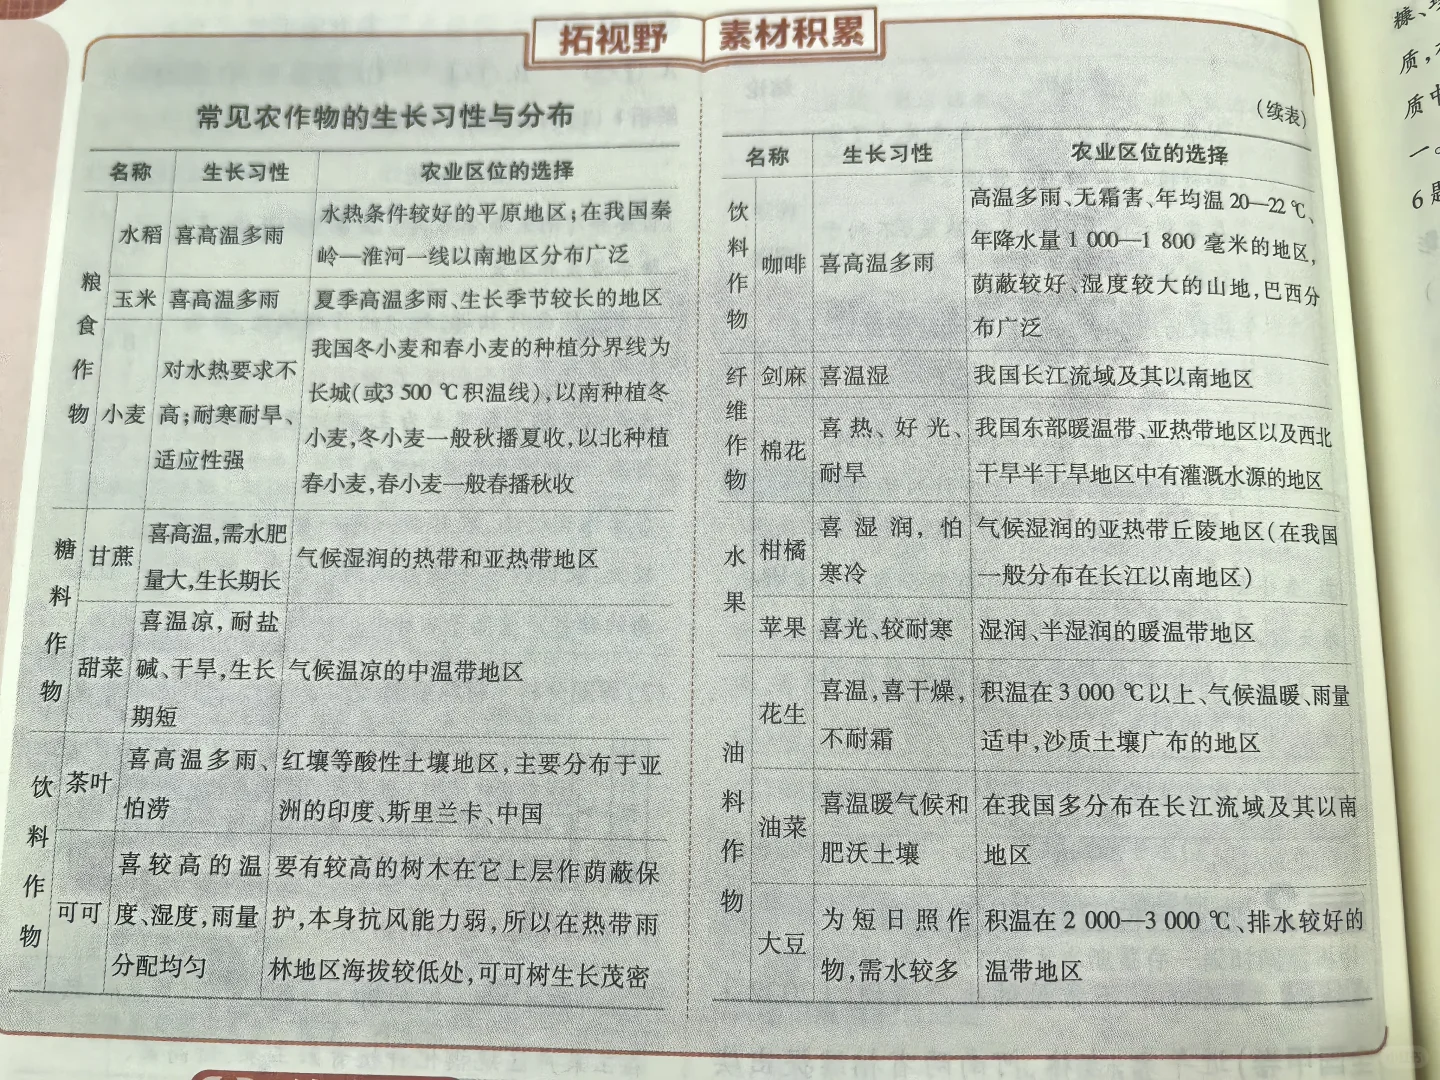 拓视野 素材积累
常见农作物的生长习性与分布
名称 生长习性 农业区位的选择
粮食作物
水稻 喜高温多雨
水热条件较好的平原地区;在我国秦
岭—淮河一线以南地区分布广泛
玉米 喜高温多雨 夏季高温多雨、生长季节较长的地区
小麦
对水热要求不
高;耐寒耐旱、
适应性强
我国冬小麦和春小麦的种植分界线为
长城(或3 500 ℃积温线),以南种植冬
小麦,冬小麦一般秋播夏收,以北种植
春小麦,春小麦一般春播秋收
糖料作物
甘蔗
喜高温,需水肥
量大,生长期长
气候湿润的热带和亚热带地区
甜菜
喜温凉,耐盐
碱、干旱,生长
期短
气候温凉的中温带地区
饮料作物
茶叶
喜高温多雨、
怕涝
红壤等酸性土壤地区,主要分布于亚
洲的印度、斯里兰卡、中国
可可
喜较高的温
度、湿度,雨量
分配均匀
要有较高的树木在它上层作荫蔽保
护,本身抗风能力弱,所以在热带雨
林地区海拔较低处,可可树生长茂密
(续表)
名称 生长习性 农业区位的选择
饮料作物
咖啡 喜高温多雨
高温多雨、无霜害、年均温 20—22 ℃、
年降水量 1 000—1 800 毫米的地区,
荫蔽较好、湿度较大的山地,巴西分
布广泛
纤维作物
剑麻 喜温湿 我国长江流域及其以南地区
棉花
喜热、好光、
耐旱
我国东部暖温带、亚热带地区以及西北
干旱半干旱地区中有灌溉水源的地区
水果
柑橘
喜湿润,怕
寒冷
气候湿润的亚热带丘陵地区(在我国
一般分布在长江以南地区)
苹果 喜光、较耐寒 湿润、半湿润的暖温带地区
油料作物
花生
喜温,喜干燥,
不耐霜
积温在 3 000 ℃以上、气候温暖、雨量
适中,沙质土壤广布的地区
油菜
喜温暖气候和
肥沃土壤
在我国多分布在长江流域及其以南
地区
大豆
为短日照作
物,需水较多
积温在 2 000—3 000 ℃、排水较好的
温带地区
糠、
质,
质中
一。
6是